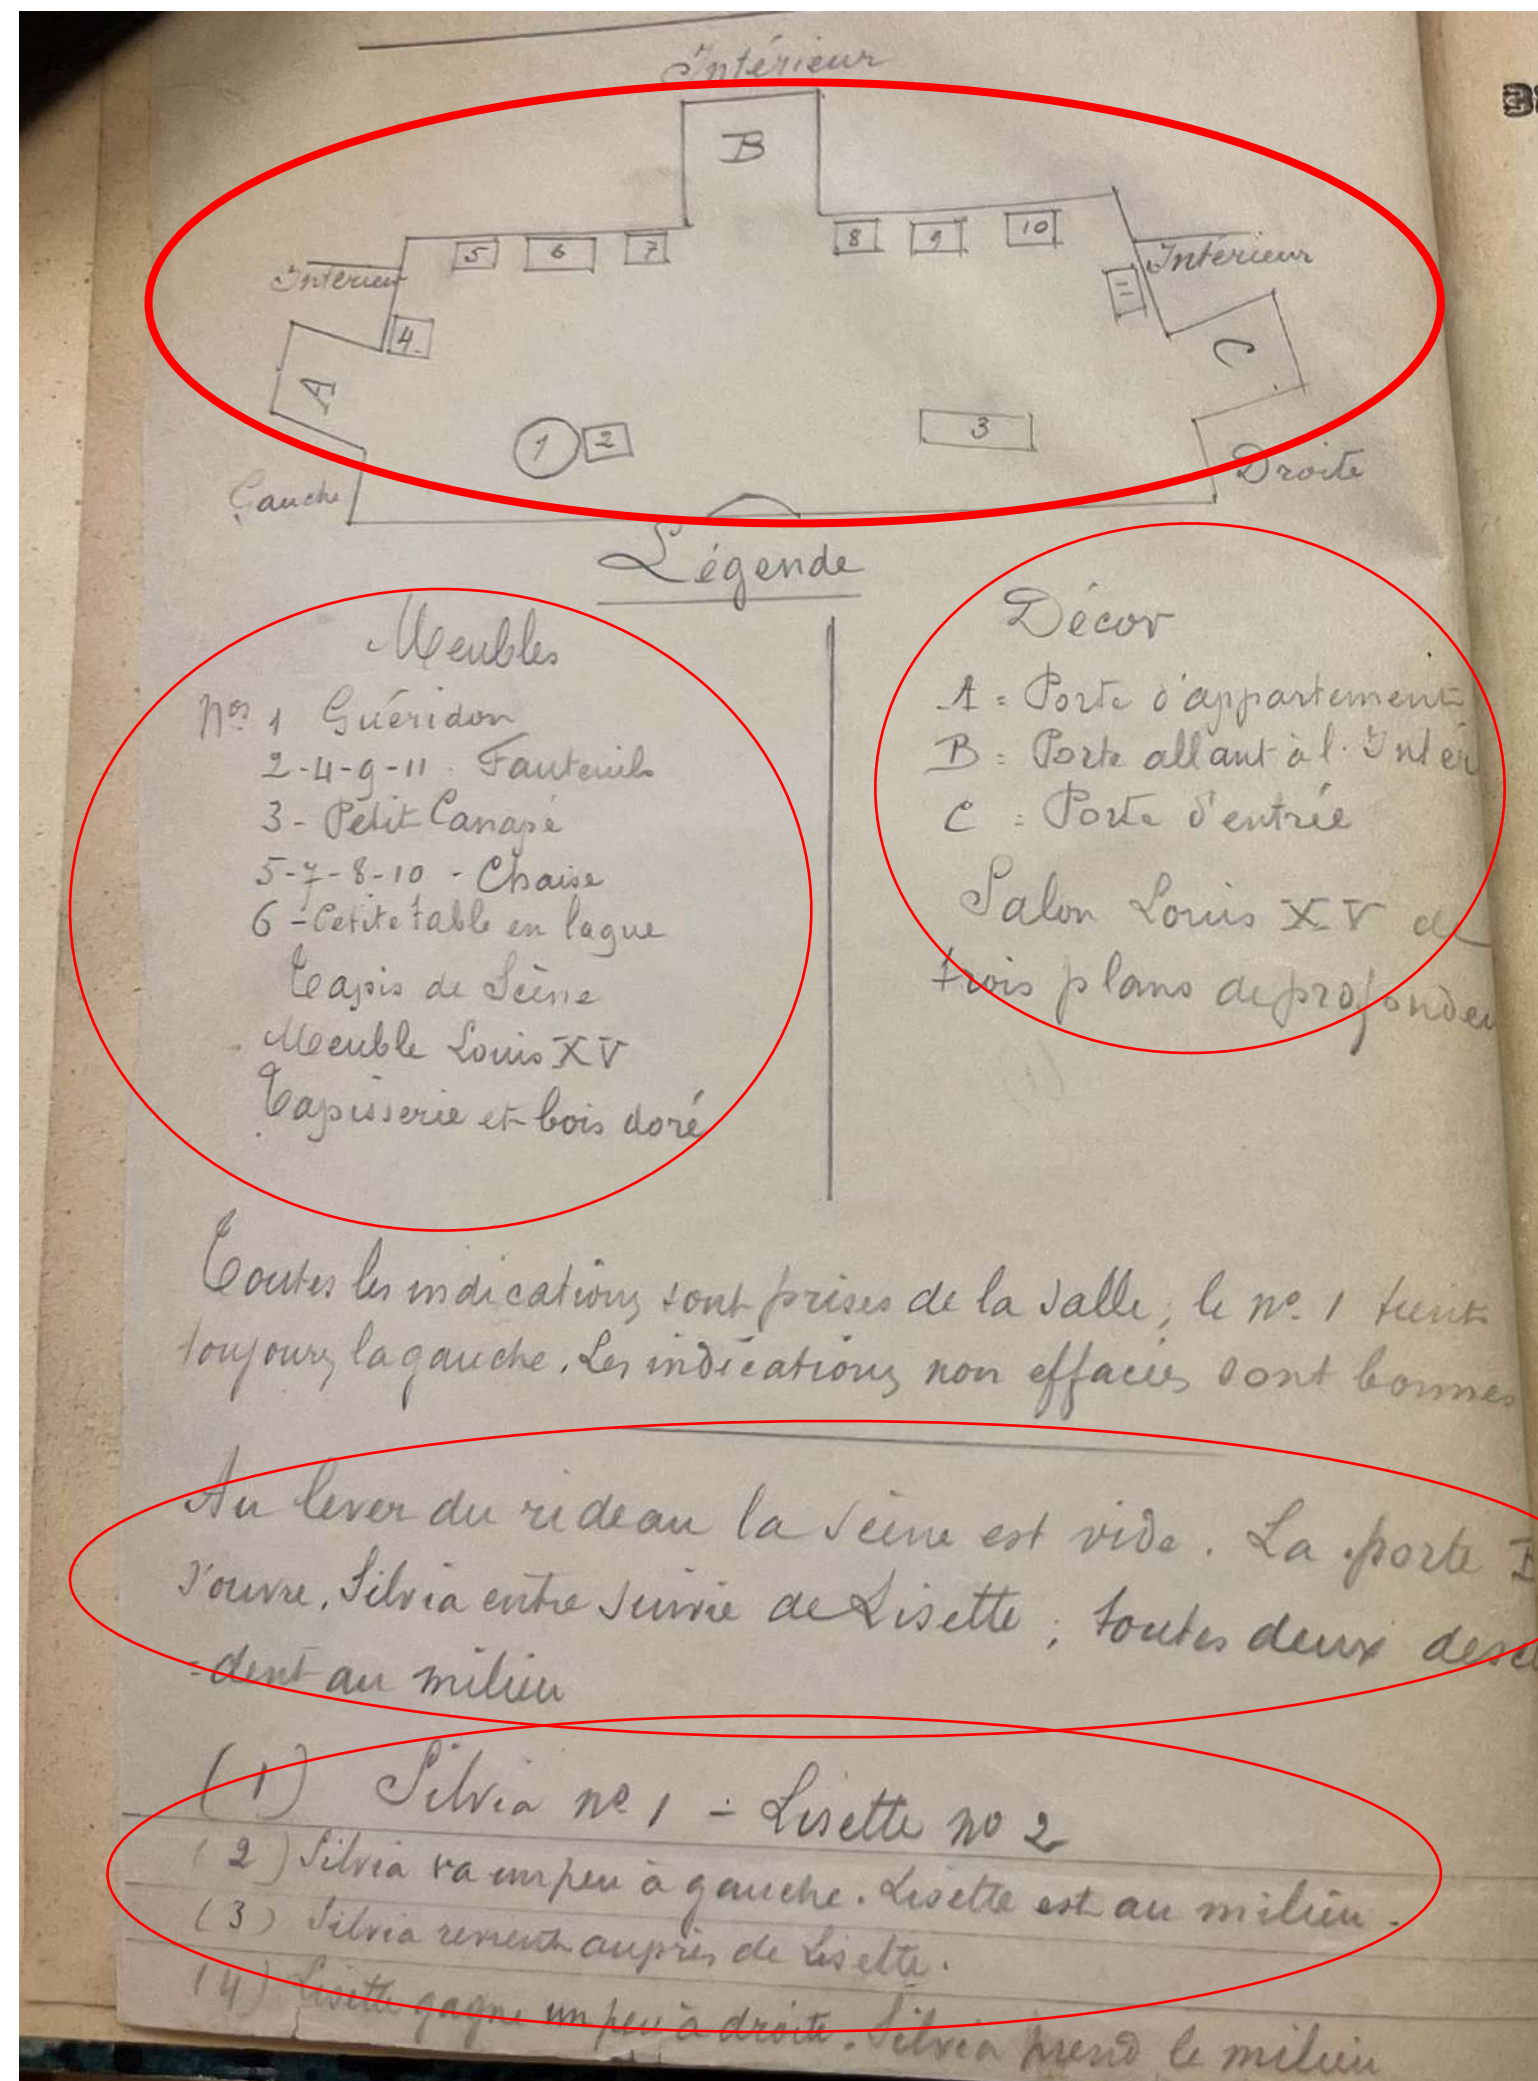 Intérieur
B
5 6 7 8 9 10
Intérieur Intérieur
4 11
A C
1 2 3
Gauche Droite
Légende
Meubles
Nos 1 Guéridon
2-4-9-11 - Fauteuils
3 - Petit Canapé
5-7-8-10 - Chaise
6 - Petite table en laque
Tapis de Scène
Meuble Louis XV
Tapisserie et bois doré
Décor
A = Porte d'appartement
B = Porte allant à l'Intér
C = Porte d'entrée
Salon Louis XV de
trois plans de profondeu
Toutes les indications sont prises de la salle, le no. 1 tient
toujours la gauche. Les indications non effacées sont bonnes
Au lever du rideau la scène est vide. La porte B
s'ouvre. Silvia entre suivie de Lisette ; toutes deux desc
-dent au milieu
(1) Silvia no 1 - Lisette no 2
(2) Silvia va un peu à gauche. Lisette est au milieu.
(3) Silvia revient auprès de Lisette.
(4) Lisette gagne un peu à droite. Silvia prend le milieu